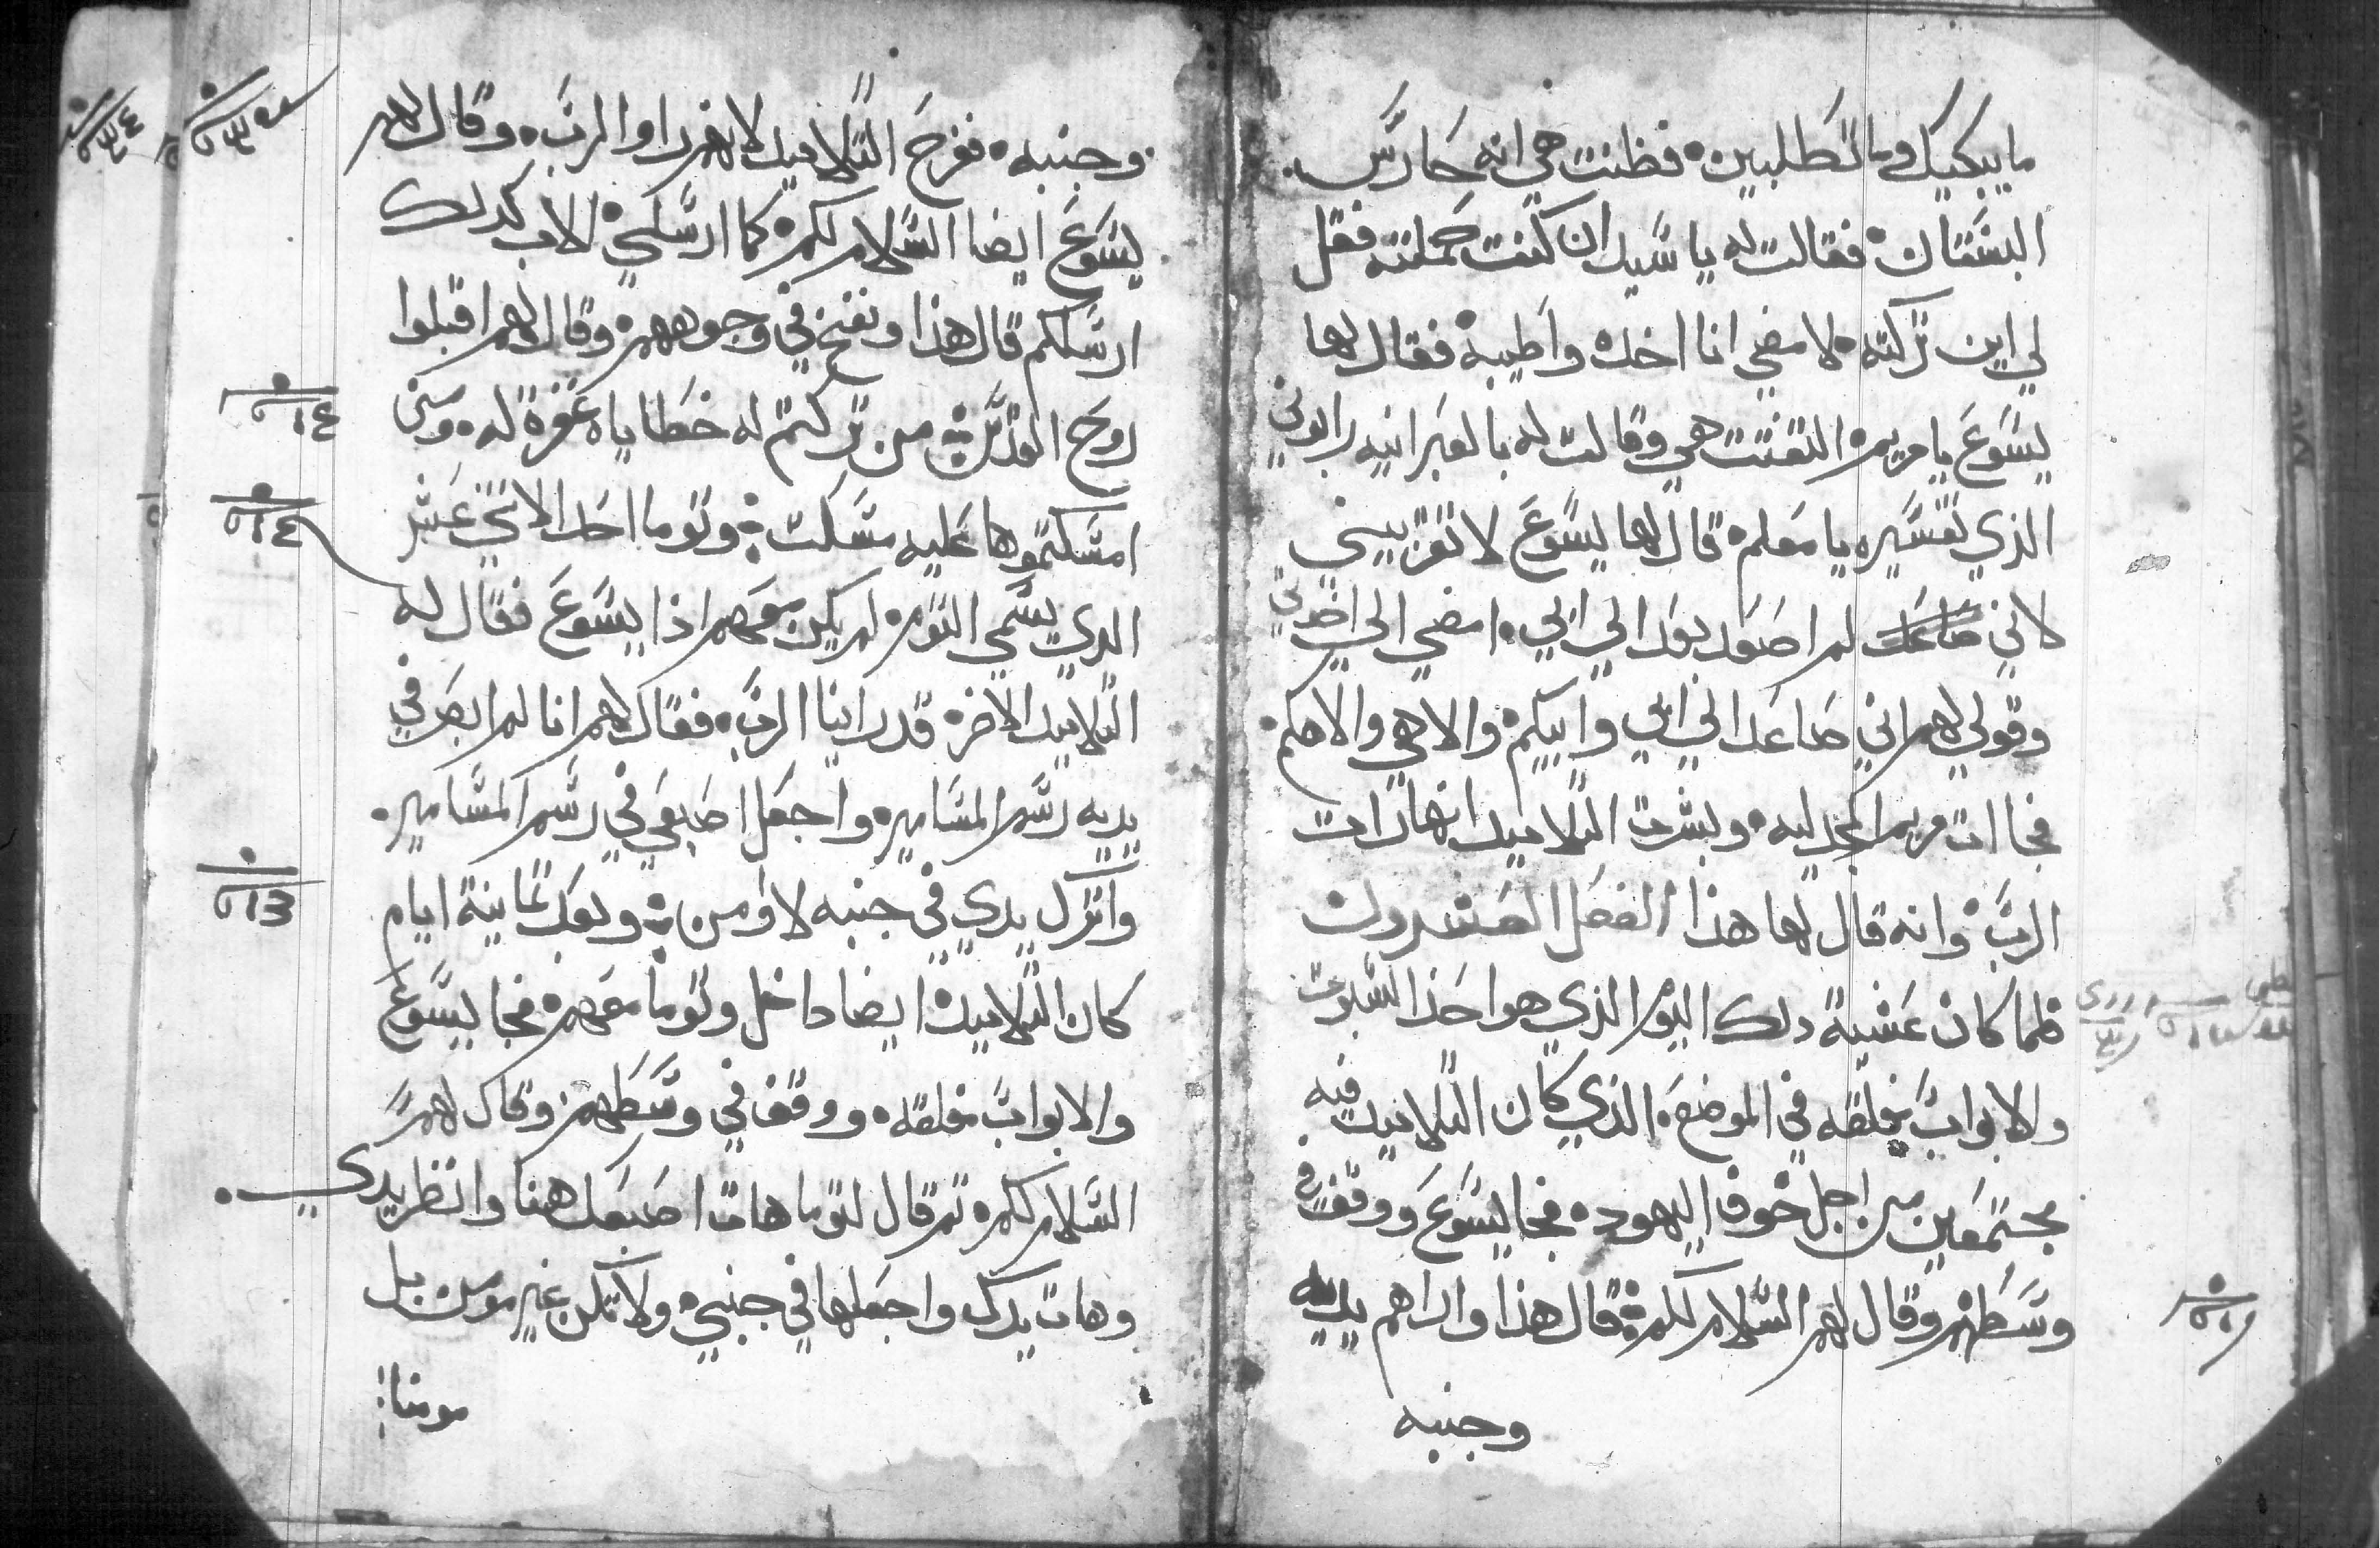 ما يبكيك وما تطلبين فظنت هي انه حارس
البستان فقالت له يا سيد ان كنت حملته فقل
لي اين تركته لامضي انا اخده واطيبه فقال لها
يسوع يا مريم التفتت هي وقالت له بالعبرانيه رابوني
الذي تفسيره يا معلم قال لها يسوع لا تقربيني
لاني لم اصعد بعد الي ابي امضي الي اخوتي
وقولي لهم اني صاعد الي ابي وابيكم والاهي والاهكم
فجاات مريم المجدليه وبشرت التلاميد انها رات
الرب وانه قال لها هذا الفصل العشرون
فلما كان عشية دلك اليوم الذي هو احد السبوت
والابواب مغلقه في الموضع الذي كان التلاميد فيه
مجتمعين من اجل خوف اليهود فجا يسوع ووقف في
وسطهم وقال لهم السلام لكم قال هذا واراهم يديه
وجنبه
وجنبه ففرح التلاميد لانهم راوا الرب وقال لهم
يسوع ايضا السلام لكم كما ارسلني الاب كدلك
ارسلكم قال هذا ونفخ في وجوههم وقال لهم اقبلوا
روح القدس من تركتم له خطاياه غفرة له ومن
امسكتموها عليه مسكت وتوما احد الاثني عشر
الدي يسمي التوم لم يكن معهم اذا يسوع فقال له
التلاميد الاخر قد راينا الرب فقال لهم انا لم ابصر في
يديه رسم المسامير واجعل اصبعي في رسم المسامير
واترك يدي في جنبه لا اومن وبعد تمانية ايام
كان التلاميد ايضا داخل وتوما معهم فجا يسوع
والابواب مغلقه ووقف في وسطهم وقال لهم
السلام لكم تم قال لتوما هات اصبعك هنا وانظر يدي
وهات يدك واجعلها في جنبي ولا تكن غير مومن بل
مومنا